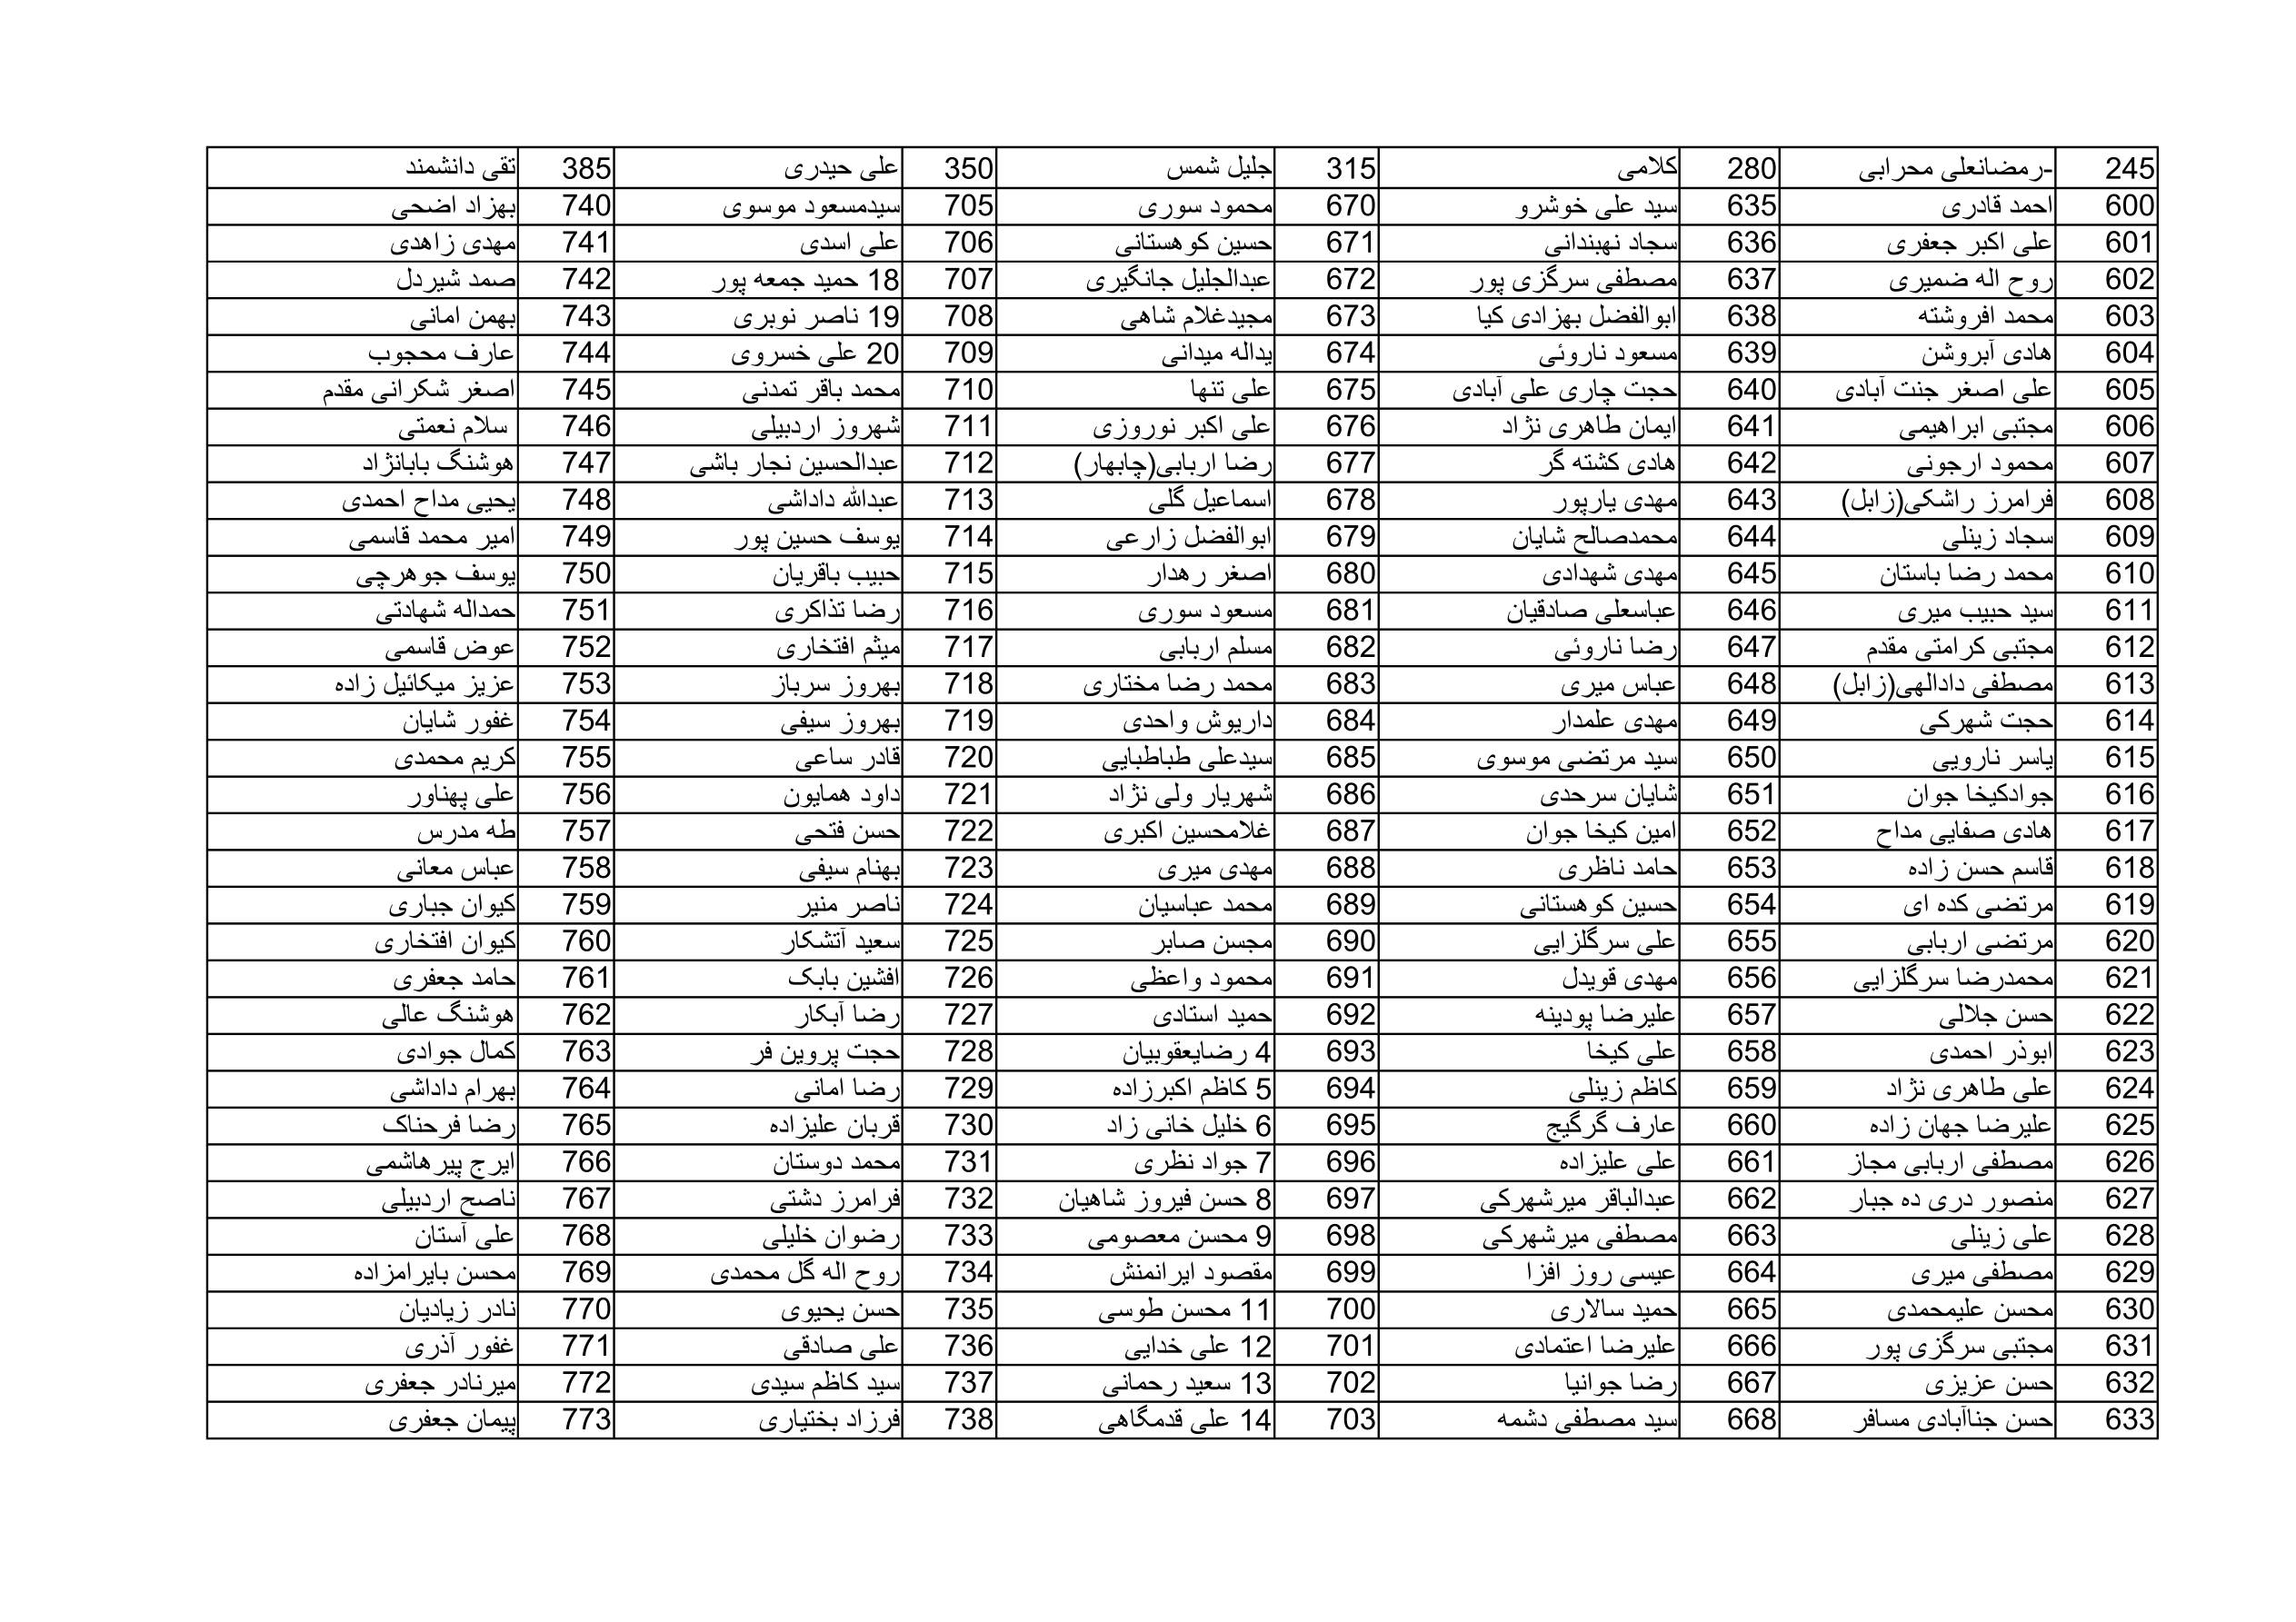 245 -رمضانعلی محرابی 280 کلامی 315 جلیل شمس 350 علی حیدری 385 تقی دانشمند
600 احمد قادری 635 سید علی خوشرو 670 محمود سوری 705 سیدمسعود موسوی 740 بهزاد اضحی
601 علی اکبر جعفری 636 سجاد نهبندانی 671 حسین کوهستانی 706 علی اسدی 741 مهدی زاهدی
602 روح اله ضمیری 637 مصطفی سرگزی پور 672 عبدالجلیل جانگیری 707 18 حمید جمعه پور 742 صمد شیردل
603 محمد افروشته 638 ابوالفضل بهزادی کیا 673 مجیدغلام شاهی 708 19 ناصر نوبری 743 بهمن امانی
604 هادی آبروشن 639 مسعود ناروئی 674 یداله میدانی 709 20 علی خسروی 744 عارف محجوب
605 علی اصغر جنت آبادی 640 حجت چاری علی آبادی 675 علی تنها 710 محمد باقر تمدنی 745 اصغر شکرانی مقدم
606 مجتبی ابراهیمی 641 ایمان طاهری نژاد 676 علی اکبر نوروزی 711 شهروز اردبیلی 746 سلام نعمتی
607 محمود ارجونی 642 هادی کشته گر 677 رضا اربابی(چابهار) 712 عبدالحسین نجار باشی 747 هوشنگ بابانژاد
608 فرامرز راشکی(زابل) 643 مهدی یارپور 678 اسماعیل گلی 713 عبدالله داداشی 748 یحیی مداح احمدی
609 سجاد زینلی 644 محمدصالح شایان 679 ابوالفضل زارعی 714 یوسف حسین پور 749 امیر محمد قاسمی
610 محمد رضا باستان 645 مهدی شهدادی 680 اصغر رهدار 715 حبیب باقریان 750 یوسف جوهرچی
611 سید حبیب میری 646 عباسعلی صادقیان 681 مسعود سوری 716 رضا تذاکری 751 حمداله شهادتی
612 مجتبی کرامتی مقدم 647 رضا ناروئی 682 مسلم اربابی 717 میثم افتخاری 752 عوض قاسمی
613 مصطفی دادالهی(زابل) 648 عباس میری 683 محمد رضا مختاری 718 بهروز سرباز 753 عزیز میکائیل زاده
614 حجت شهرکی 649 مهدی علمدار 684 داریوش واحدی 719 بهروز سیفی 754 غفور شایان
615 یاسر نارویی 650 سید مرتضی موسوی 685 سیدعلی طباطبایی 720 قادر ساعی 755 کریم محمدی
616 جوادکیخا جوان 651 شایان سرحدی 686 شهریار ولی نژاد 721 داود همایون 756 علی پهناور
617 هادی صفایی مداح 652 امین کیخا جوان 687 غلامحسین اکبری 722 حسن فتحی 757 طه مدرس
618 قاسم حسن زاده 653 حامد ناظری 688 مهدی میری 723 بهنام سیفی 758 عباس معانی
619 مرتضی کده ای 654 حسین کوهستانی 689 محمد عباسیان 724 ناصر منیر 759 کیوان جباری
620 مرتضی اربابی 655 علی سرگلزایی 690 مجسن صابر 725 سعید آتشکار 760 کیوان افتخاری
621 محمدرضا سرگلزایی 656 مهدی قویدل 691 محمود واعظی 726 افشین بابک 761 حامد جعفری
622 حسن جلالی 657 علیرضا پودینه 692 حمید استادی 727 رضا آبکار 762 هوشنگ عالی
623 ابوذر احمدی 658 علی کیخا 693 4 رضایعقوبیان 728 حجت پروین فر 763 کمال جوادی
624 علی طاهری نژاد 659 کاظم زینلی 694 5 کاظم اکبرزاده 729 رضا امانی 764 بهرام داداشی
625 علیرضا جهان زاده 660 عارف گرگیج 695 6 خلیل خانی زاد 730 قربان علیزاده 765 رضا فرحناک
626 مصطفی اربابی مجاز 661 علی علیزاده 696 7 جواد نظری 731 محمد دوستان 766 ایرج پیرهاشمی
627 منصور دری ده جبار 662 عبدالباقر میرشهرکی 697 8 حسن فیروز شاهیان 732 فرامرز دشتی 767 ناصح اردبیلی
628 علی زینلی 663 مصطفی میرشهرکی 698 9 محسن معصومی 733 رضوان خلیلی 768 علی آستان
629 مصطفی میری 664 عیسی روز افزا 699 مقصود ایرانمنش 734 روح اله گل محمدی 769 محسن بایرامزاده
630 محسن علیمحمدی 665 حمید سالاری 700 11 محسن طوسی 735 حسن یحیوی 770 نادر زیادیان
631 مجتبی سرگزی پور 666 علیرضا اعتمادی 701 12 علی خدایی 736 علی صادقی 771 غفور آذری
632 حسن عزیزی 667 رضا جوانیا 702 13 سعید رحمانی 737 سید کاظم سیدی 772 میرنادر جعفری
633 حسن جناآبادی مسافر 668 سید مصطفی دشمه 703 14 علی قدمگاهی 738 فرزاد بختیاری 773 پیمان جعفری